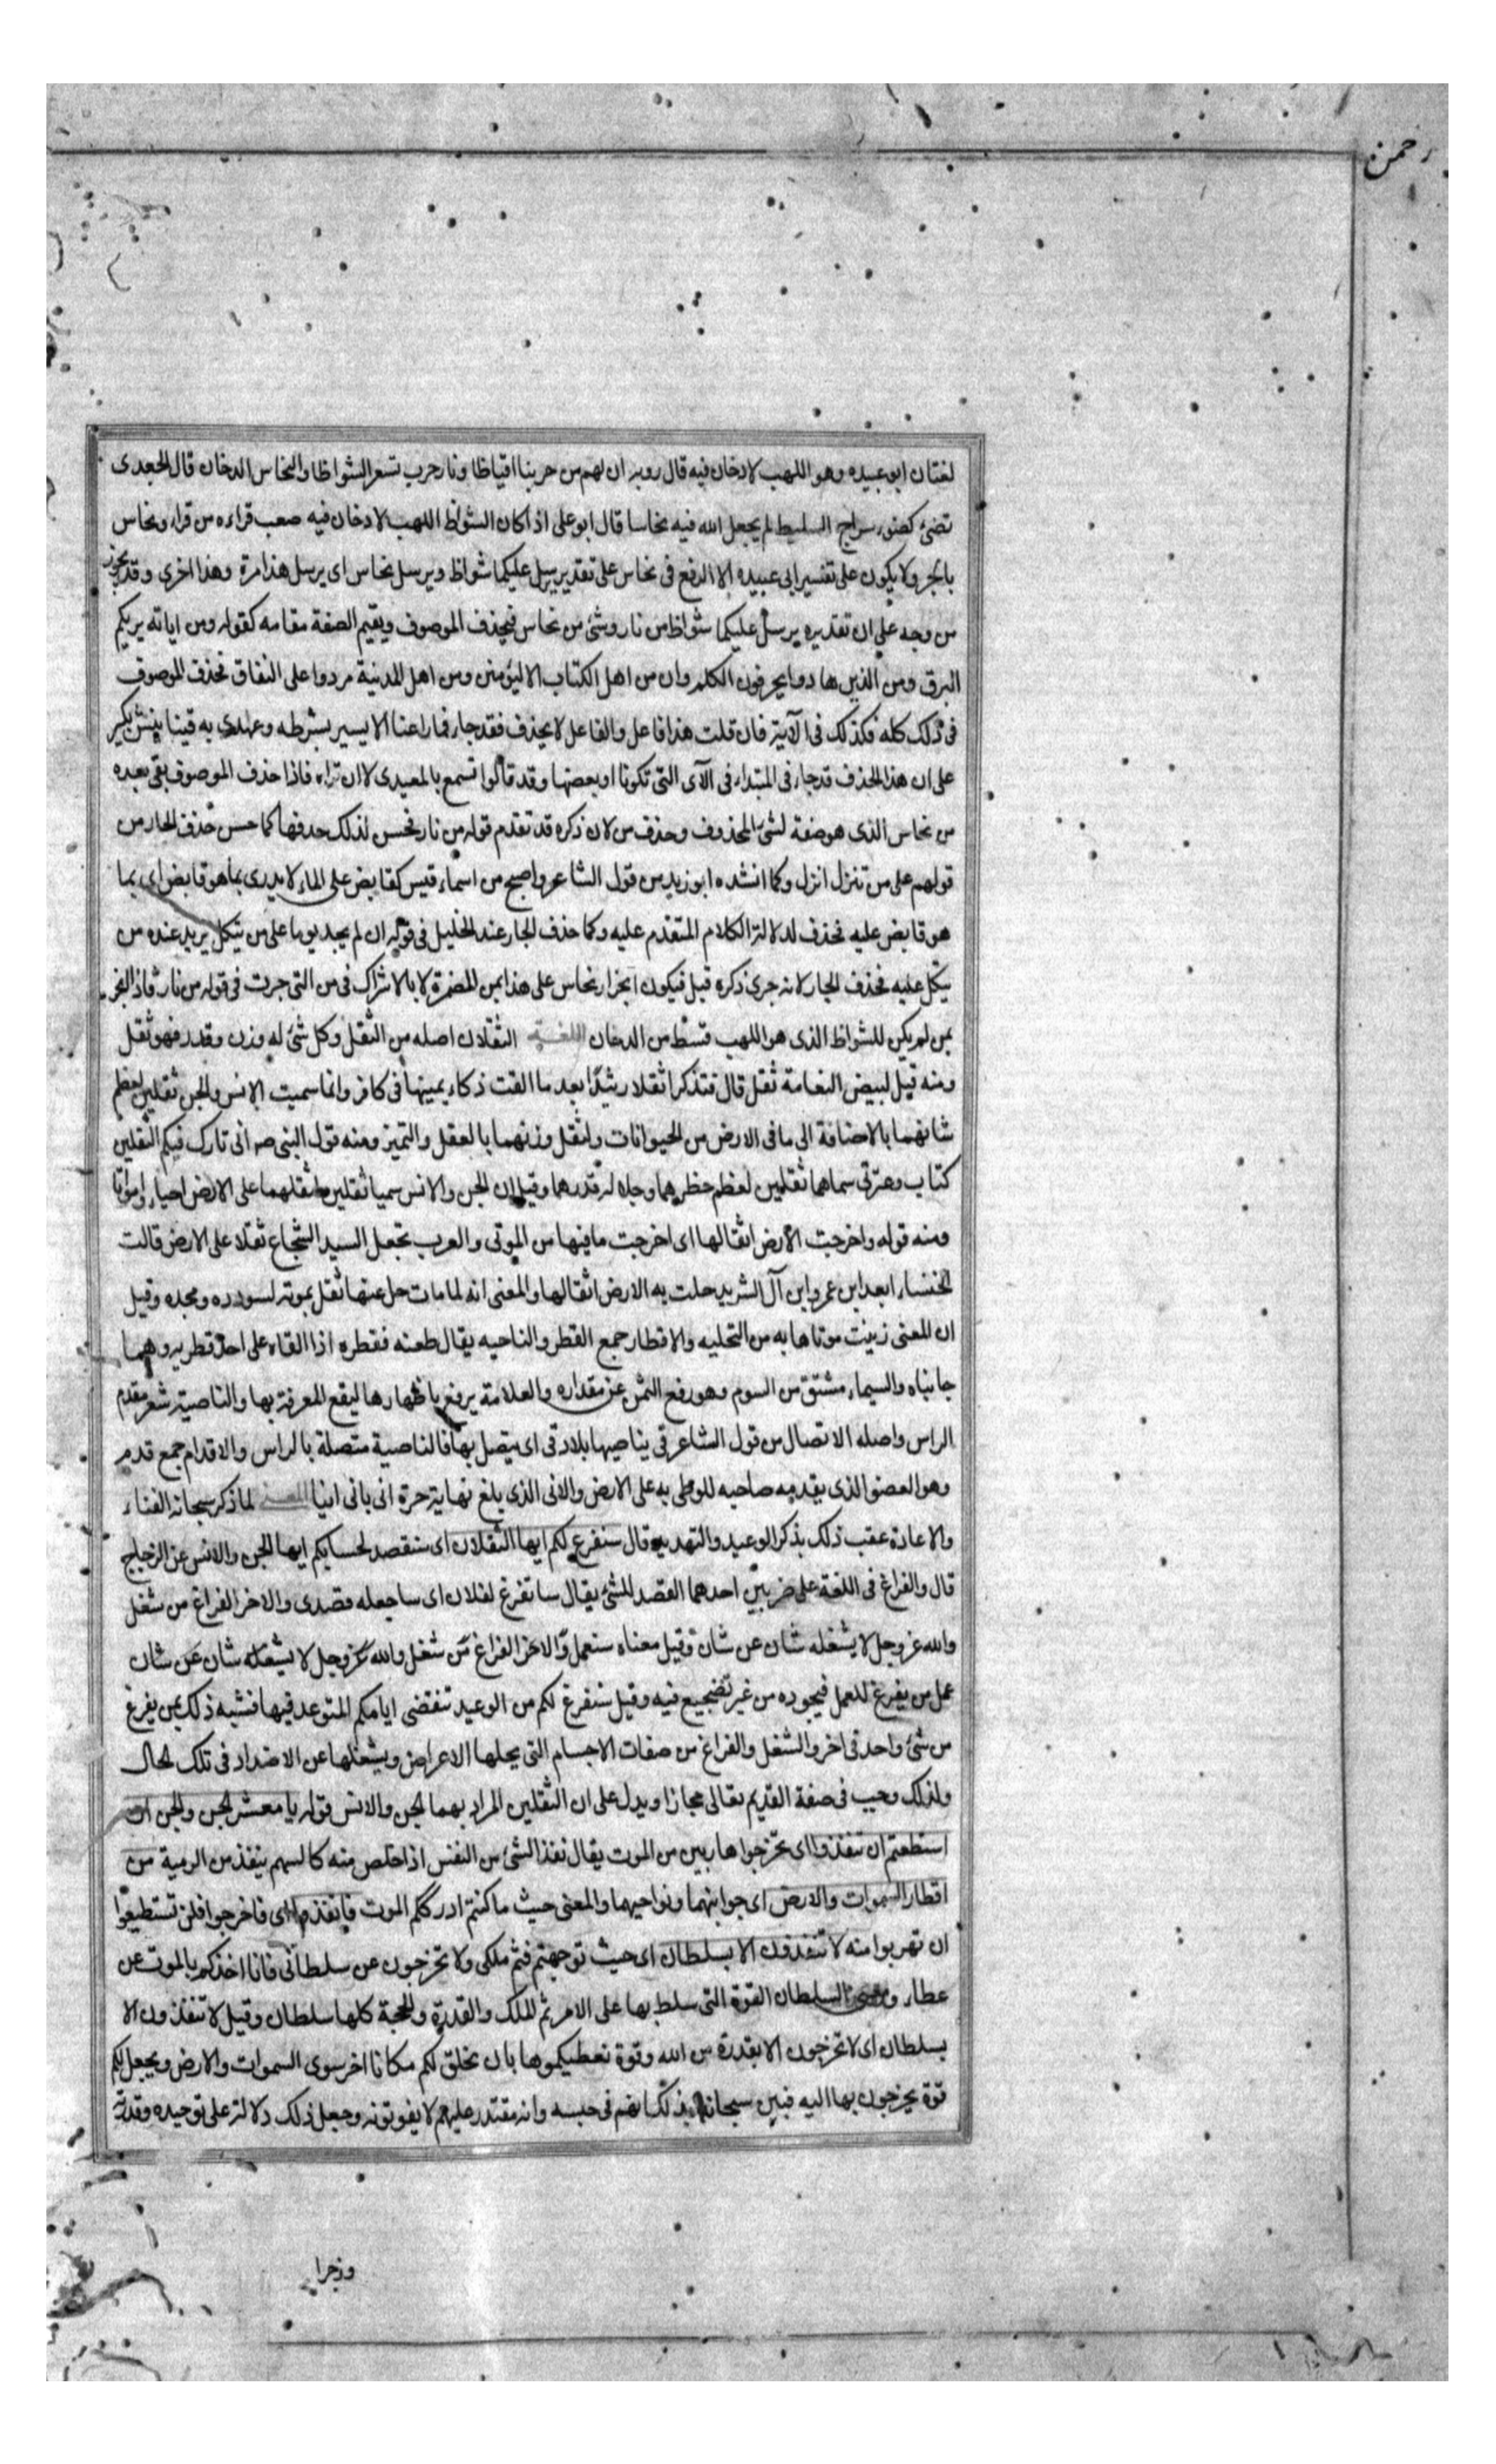 رحمن
لغتان ابو عبيده وهو اللهب لا دخان فيه قال روبه ان لهم من حربنا اقياظا ونار حرب تسعر الشواظا والنحاس الدخان قال الجعدى
تضئ كضوء سراج السليط لم يجعل الله فيه نحاسا قال ابو على اذا كان الشواظ اللهب لا دخان فيه صعب قراءه من قراء ونحاس
بالجر ولا يكون على تفسير ابى عبيده الا الرفع فى نحاس على تقدير يرسل عليكما شواظ ويرسل نحاس اى يرسل هذا مرة وهذا اخرى وقد يجوز
من وجه على ان تقديره يرسل عليكما شواظ من نار وشئ من نحاس فيحذف الموصوف ويقيم الصفة مقامه كقوله ومن اياته يريكم
البرق ومن الذين هادوا يحرفون الكلم وان من اهل الكتاب الا ليؤمنن ومن اهل المدنية مردوا على النفاق فحذف الموصوف
فى ذلك كله فكذلك فى الآية فان قلت هذا فاعل والفاعل لا يحذف فقد جاء فما راعنا الا يسير بشرطه وعهدى به قينا يفش بكير
على ان هذا الحذف قد جاء فى المبتداء فى الآى التى تكونا او بعضها وقد قالوا تسمع بالمعيدى لا ان تراه فاذا حذف الموصوف بقى بعده
من نحاس الذى هو صفة لشئ المحذوف وحذف من لان ذكره قد تقدم قوله من نار فحسن لذلك حذفها كما حسن حذف الجار من
قولهم على من تنزل انزل وكما انشده ابو زيد من قول الشاعر واصبح من اسماء قيس كقابض على الماء لا يدرى بما هو قابض اى بما
هو قابض عليه فحذف لدلالة الكلام المتقدم عليه وكما حذف الجار عند الخليل فى قوله ان لم يجد يوما على من يتكل يريد عنده من
يتكل عليه فحذف الجار لانه جرى ذكره قبل فيكون انجرار نحاس على هذا بمن المضمرة لا بالاشراك فى من التى جرت فى قوله من نار فاذا انجر
بمن لم يكن للشواظ الذى هو اللهب قسط من الدخان اللغة الثقلان اصله من الثقل وكل شئ له وزن وقدر فهو ثقل
ومنه قيل لبيض النعامة ثقل قال فتذكرا ثقلا رثيدا بعد ما القت ذكاء يمينها فى كافر وانما سميت الانس والجن ثقلين لعظم
شانهما بالاضافة الى ما فى الارض من الحيوانات ولثقل وزنهما بالعقل والتميز ومنه قول النبى صه انى تارك فيكم الثقلين
كتاب وعترتى سماهما ثقلين لعظم خطرهما وجلالة قدرهما وقيل ان الجن والانس سميا ثقلين لثقلهما على الارض احياء وامواتا
ومنه قوله واخرجت الارض اثقالها اى اخرجت ما فيها من الموتى والعرب تجعل السيد الشجاع ثقلا على الارض قالت
الخنساء ابعد ابن عمرو ابن آل الشريد حلت به الارض اثقالها والمعنى انه لما مات حل عنها ثقل بموته لسودده ومجده وقيل
ان المعنى زينت موتاها به من التحليه والاقطار جمع القطر والناحيه يقال طعنه فقطره اذا القاه على احد قطريه وهما
جانباه والسيماء مشتق من السوم وهو رفع الثمن عن مقداره والعلامة يرفع باظهارها ليقع المعرفة بها والناصية شعر مقدم
الراس واصله الاتصال من قول الشاعر قى يناصيها بلاد قى اى يتصل بها فالناصية متصلة بالراس والاقدام جمع قدم
وهو العضو الذى يقدمه صاحبه للوطى به على الارض والانى الذى بلغ نهاية حرة انى يانى انيا لما ذكر سبحانه الفناء
والاعادة عقب ذلك بذكر الوعيد والتهديد قال سنفرغ لكم ايها الثقلان اى سنقصد لحسابكم ايها الجن والانس عن الزجاج
قال والفراغ فى اللغة على ضربين احدهما القصد للشئ يقال ساتفرغ لفلان اى ساجعله قصدى والاخر الفراغ من شغل
والله عز وجل لا يشغله شان عن شان وقيل معناه سنعمل والاخر الفراغ من شغل والله عز وجل لا يشغله شان عن شان
عمل من يفرغ للعمل فيجوده من غير تضجيع فيه وقيل سنفرغ لكم من الوعيد تنقضى ايامكم المتوعد فيها فشبه ذلك بمن يفرغ
من شئ واحد فى اخر والشغل والفراغ من صفات الاجسام التى يحلها الاعراض ويشغلها عن الاضداد فى تلك الحال
ولذلك وجب فى صفة القديم تعالى مجازا ويدل على ان الثقلين المراد بهما الجن والانس قوله يا معشر الجن والجن ان
استطعتم ان تنفذوا اى تخرجوا هاربين من الموت يقال نفذ الشئ من النفس اذا خلص منه كالسهم ينفذ من الرمية من
اقطار السموات والارض اى جوانبهما ونواحيهما والمعنى حيث ما كنتم ادرككم الموت فانفذوا اى فاخرجوا فلن تستطيعوا
ان تهربوا منه لا تنفذون الا بسلطان اى حيث توجهتم فثم ملكى ولا تخرجون عن سلطانى فانا اخذكم بالموت عن
عطاء ومعنى السلطان القوة التى سلط بها على الامر ثم الملك والقدرة والحجة كلها سلطان وقيل لا تنفذون الا
بسلطان اى لا تخرجون الا بقدرة من الله وقوة نعطيكموها بان نخلق لكم مكانا اخر سوى السموات والارض ويجعل لكم
قوة يخرجون بها اليه فبين سبحانه بذلك انهم فى حبسه وانه مقتدر عليهم لا يفوتونه وجعل ذلك دلالة على توحيده وقدرته
وزجرا